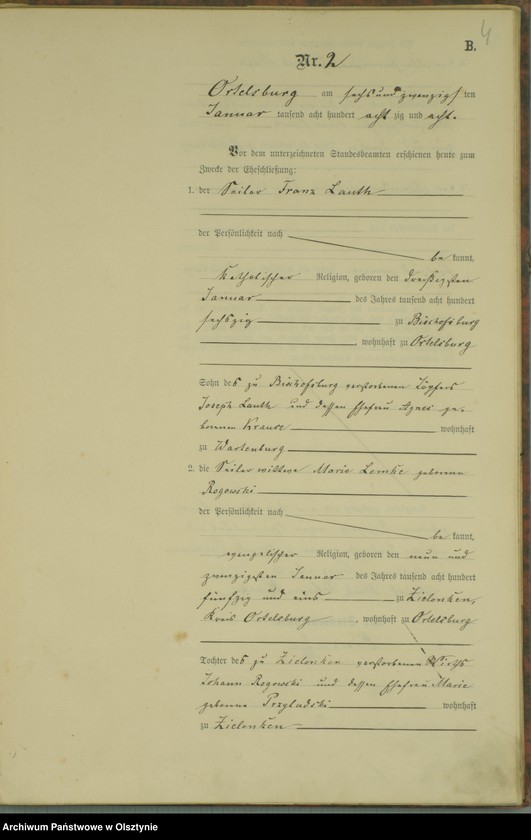 4
B.
Nr. 2
Ortelsburg am sechsundzwanzigsten
Januar tausend acht hundert acht zig und acht.
Vor dem unterzeichneten Standesbeamten erschienen heute zum
Zwecke der Eheschließung:
1. der Seiler Franz Lauth
der Persönlichkeit nach
be kannt,
katholischer Religion, geboren den dreißigsten
Januar des Jahres tausend acht hundert
sechszig zu Bischofsburg
, wohnhaft zu Ortelsburg
Sohn des zu Bischofsburg verstorbenen Töpfers
Joseph Lauth und dessen Ehefrau Agnes ge-
borenen Krause wohnhaft
zu Wartenburg
2. die Seilerwittwe Marie Lemke geborene
Rogowski
der Persönlichkeit nach
be kannt,
evangelischer Religion, geboren den neun und
zwanzigsten Januar des Jahres tausend acht hundert
fünfzig und eins zu Zielonken,
Kreis Ortelsburg, wohnhaft zu Ortelsburg
Tochter des zu Zielonken verstorbenen Wirths
Johann Rogowski und dessen Ehefrau Marie
geborene Przyladski wohnhaft
zu Zielonken
Archiwum Państwowe w Olsztynie